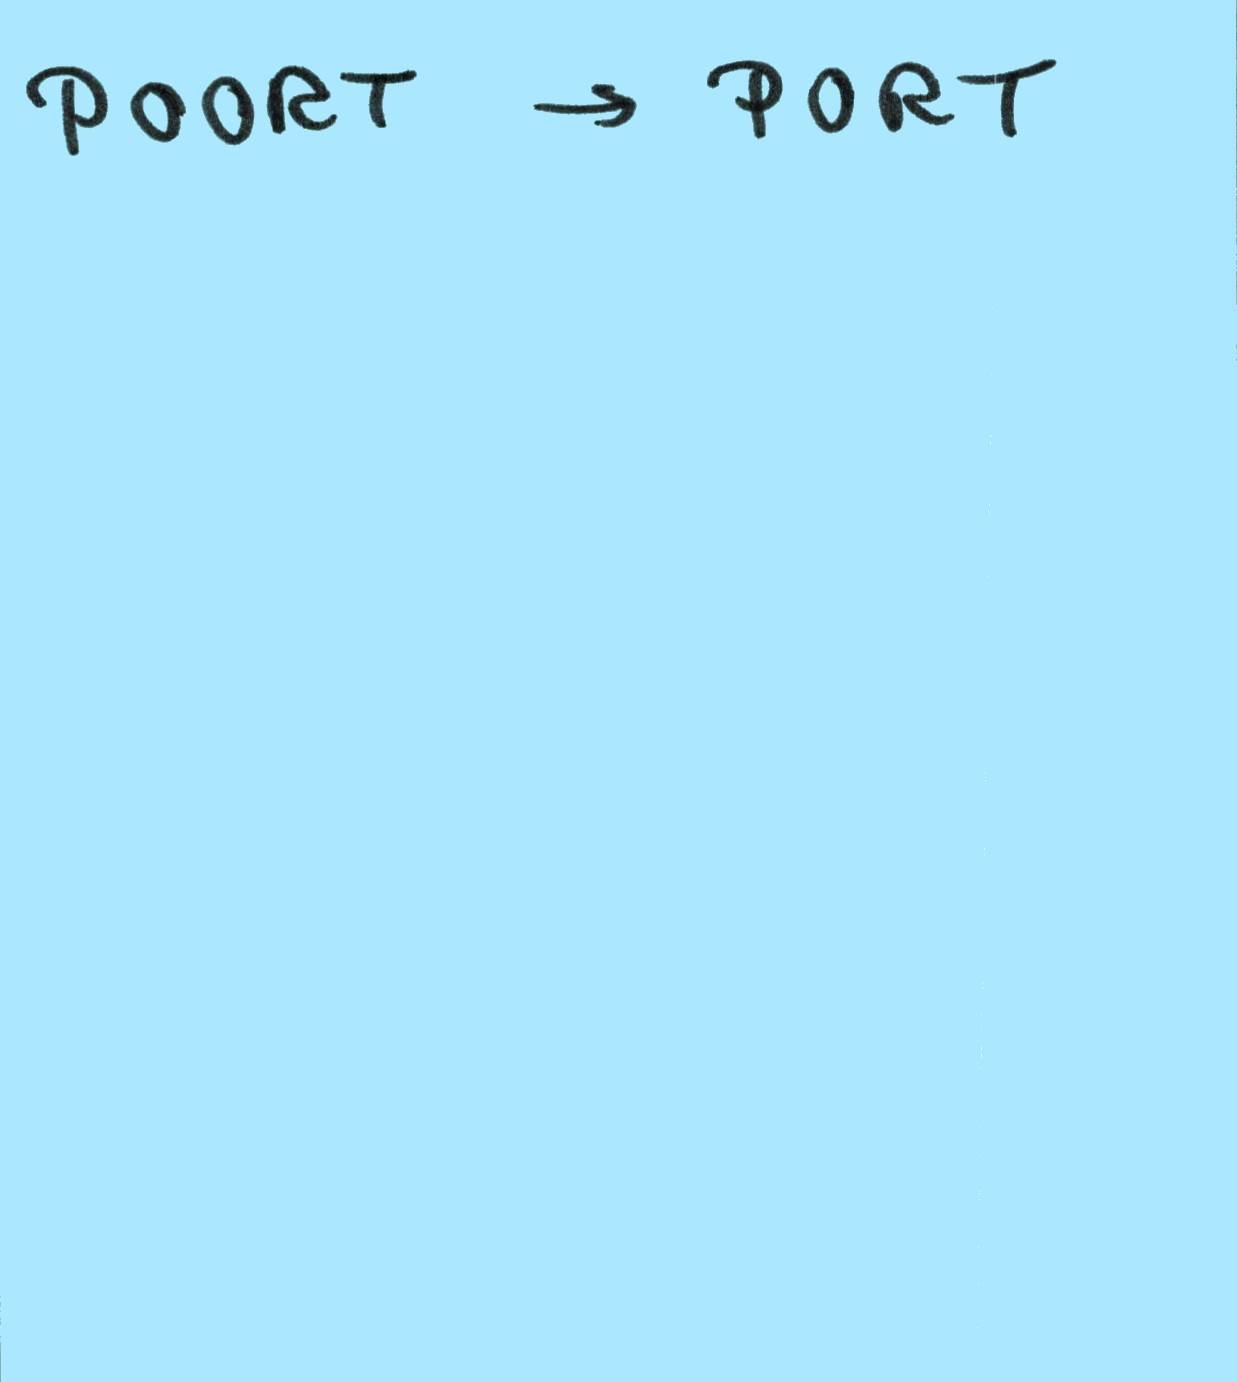 POORT → PORT